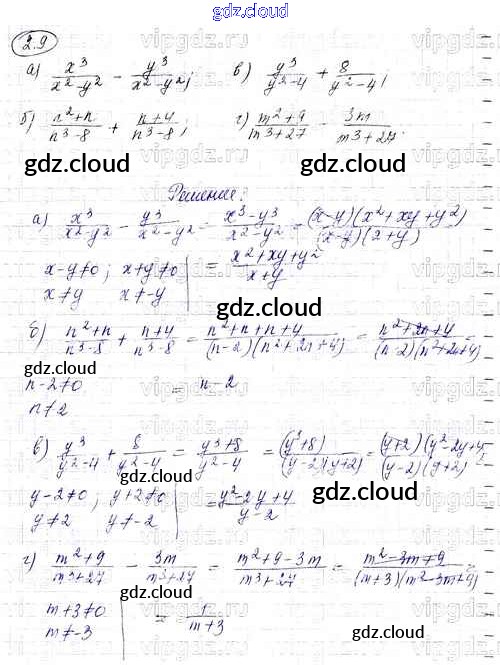 gdz.cloud
2.9
а) x³/(x²-y²) - y³/(x²-y²); в) y³/(y²-4) + 8/(y²-4);
б) (n²+n)/(n³-8) + (n+4)/(n³-8); г) (m²+9)/(m³+27) - 3m/(m³+27).
gdz.cloud gdz.cloud
Решение:
а) x³/(x²-y²) - y³/(x²-y²) = (x³-y³)/(x²-y²) = (x-y)(x²+xy+y²)/(x-y)(2+y)
x-y≠0; x+y≠0 | = (x²+xy+y²)/(x+y)
x≠y x≠-y
gdz.cloud
б) (n²+n)/(n³-8) + (n+4)/(n³-8) = (n²+n+n+4)/(n-2)(n²+2n+4) = (n²+2n+4)/(n-2)(n²+2n+4)
gdz.cloud
n-2≠0 = n-2
n≠2
в) y³/(y²-4) + 8/(y²-4) = (y³+8)/(y²-4) = (y³+8)/(y-2)(y+2) = (y+2)(y²-2y+4)/(y-2)(y+2)
gdz.cloud
y-2≠0; y+2≠0 | = (y²-2y+4)/(y-2)
gdz.cloud
y≠2 y≠-2
г) (m²+9)/(m³+27) - 3m/(m³+27) = (m²+9-3m)/(m³+27) = (m²-3m+9)/(m+3)(m²-3m+9)
m+3≠0 | = 1/(m+3)
m≠-3
gdz.cloud